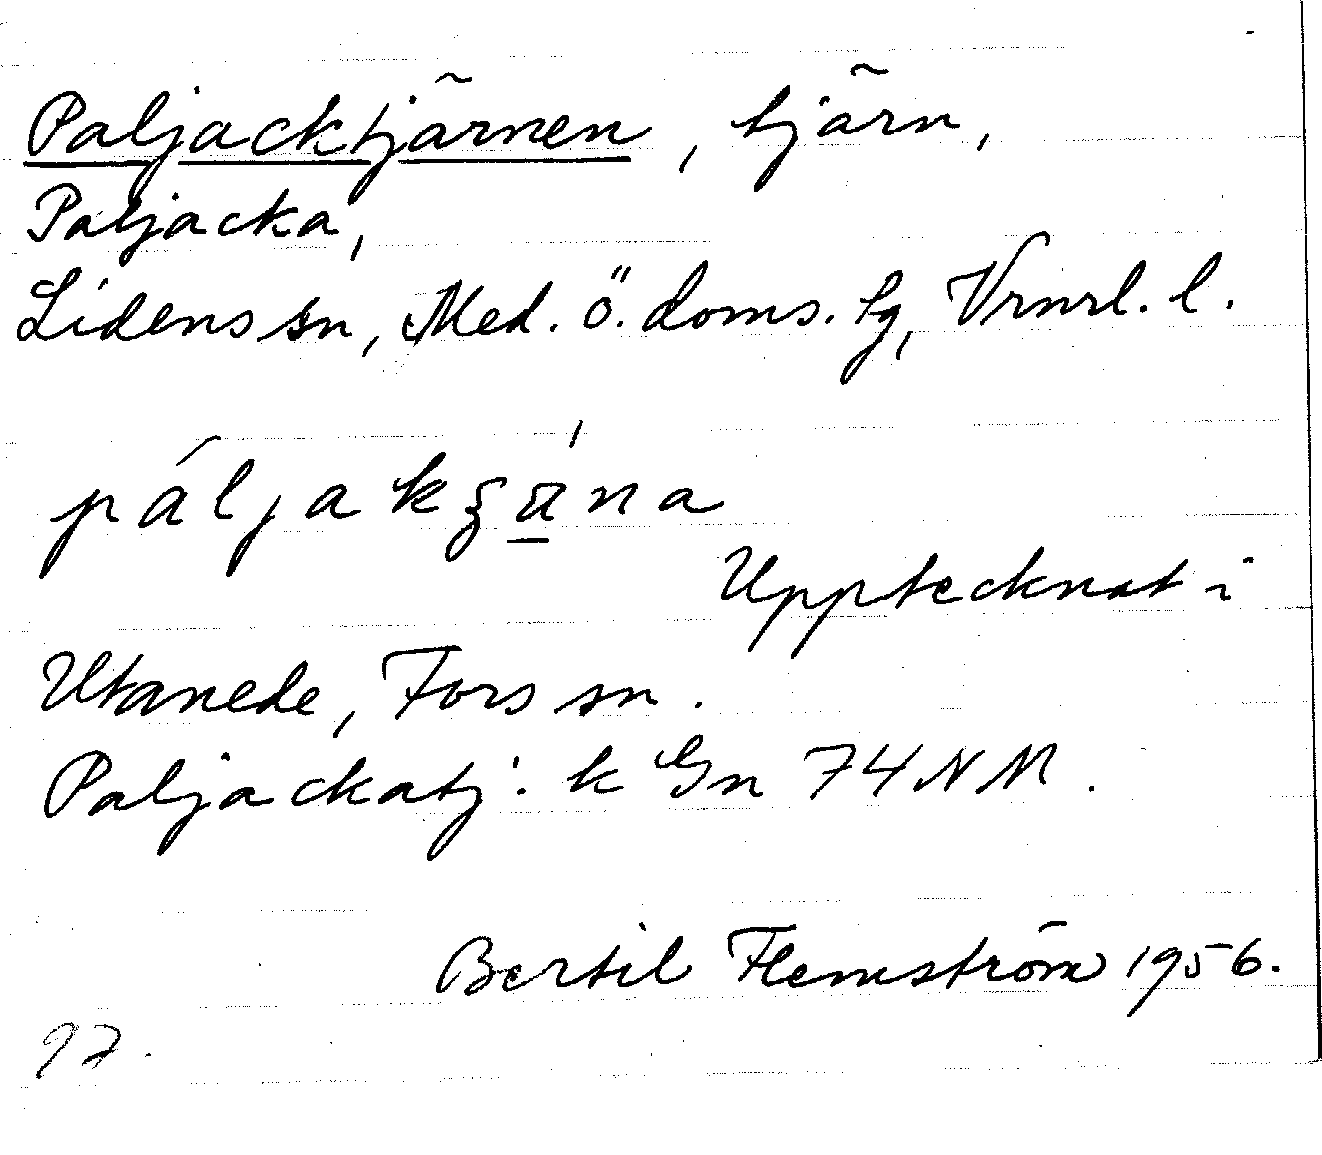 Paljacktjärnen, tjärn,
Paljacka,
Lidens sn, Med. ö. doms. lg, Vrnrl. l.
páljakʒa̲̍na
Upptecknat i
Utanede, Fors sn.
Paljackatj: k Gn 74 NM.
Bertil Flemström 1956.
97.